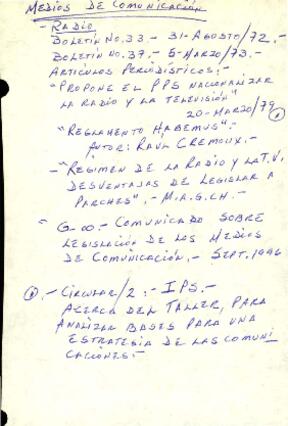 MEDIOS DE COMUNICACIÓN
- RADIO
BOLETIN NO. 33 - 31-AGOSTO/72.-
BOLETIN NO. 37. - 5-MARZO/73.-
ARTICULOS PERIODÍSTICOS:-
"PROPONE EL PPS NACIONALIZAR
LA RADIO Y LA TELEVISIÓN"
20-MARZO/79
"REGLAMENTO HABEMUS".-
AUTOR: RAUL CREMOUX.-
-"REGIMEN DE LA RADIO Y LA T.V.
DESVENTAJAS DE LEGISLAR A
PARCHES".- M.A.G.CH.-
COMUNICADO SOBRE
LEGISLACIÓN DE LOS MEDIOS
DE COMUNICACIÓN.- SEPT. 1996
.- CIRCULAR/2:- IPS.-
ACERCA DEL TALLER, PARA
ANALIZAR BASES PARA UNA
ESTRATEGIA DE LAS COMUNI
CACIONES.-